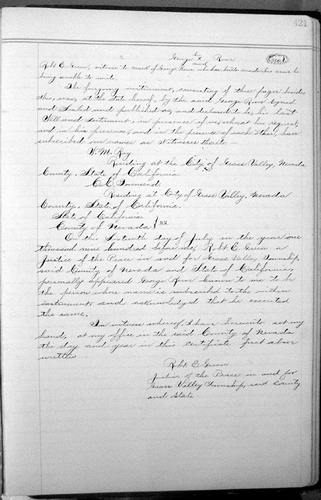 421
his
George X Rowe
mark
Robt C. Green, witness to mark of George Rowe who has hereto made his cross he
being unable to write.
The forgoing instrument, consisting of three pages besides
this, was, at the date hereof, by the said George Rowe signed
and Sealed and published as, and declared to be, his Last
Will and Testament, in presence of us, who, at his request,
and in his presence, and in the presence of each other, have
subscribed our names as Witnesses thereto.
W. M. Roy
Residing at the City of Grass Valley, Nevada
County, State of California
C. C. Townsend
Residing at City of Grass Valley, Nevada
County, State of California.
State of California
County of Nevada } ss.
On this day of July in the year one
thousand nine hundred before me, Robt C. Green a
Justice of the Peace in and for Grass Valley Township,
said County of Nevada and State of California,
personally appeared George Rowe known to me to be
the person whose name is subscribed to the within
instrument and acknowledged that he executed
the same.
In witness whereof, I have hereunto set my
hand, at my office in the said County of Nevada
the day and year in this certificate first above
written.
Robt C. Green
Justice of the Peace in and for
Grass Valley Township, said County
and State